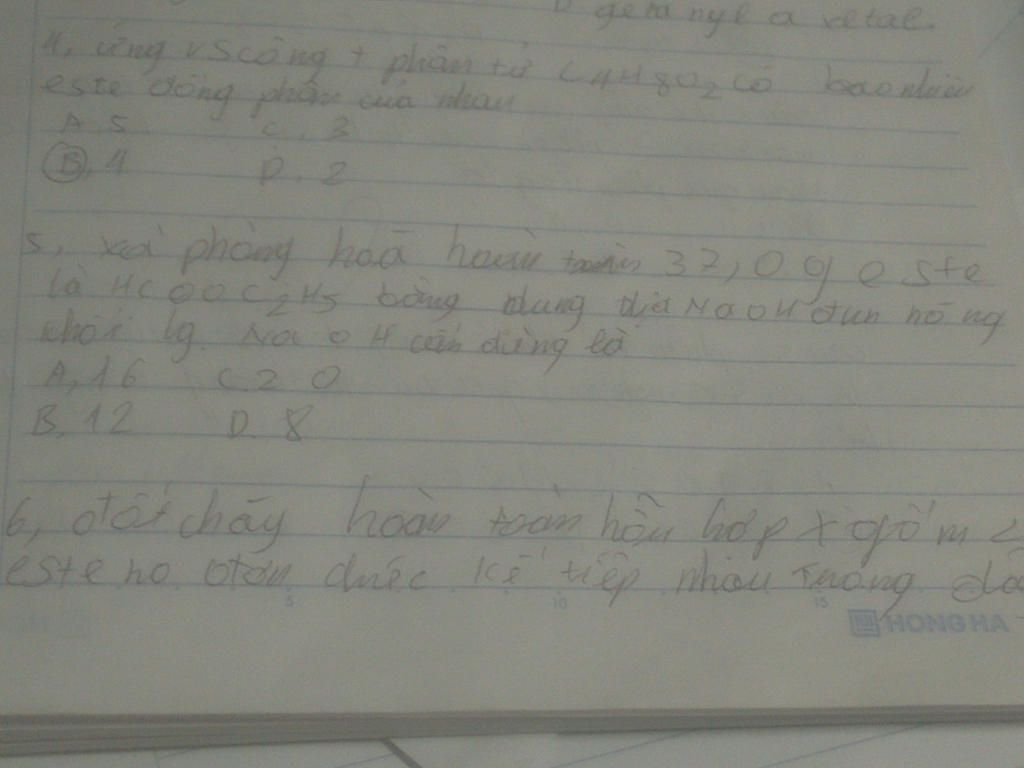 D geranyl axetat.
4, ứng vs công t phân tử C4H8O2 có bao nhiêu
este đồng phân của nhau
A 5 C. 3
B, 4 D. 2
5, xà phòng hoá hoàn toàn 37,0 g este
là HCOOC2H5 bằng dung dịa NaOH đun nóng
khối lg NaOH cần dùng là
A, 16 C 20
B, 12 D. 8
6, đốt cháy hoàn toàn hỗn hợp X gồm 2
este no đơn chức kế tiếp nhau trong
5 10 15
HONG HA